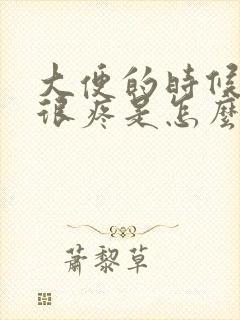 大便的時候
很疼是怎麼
蕭黎草